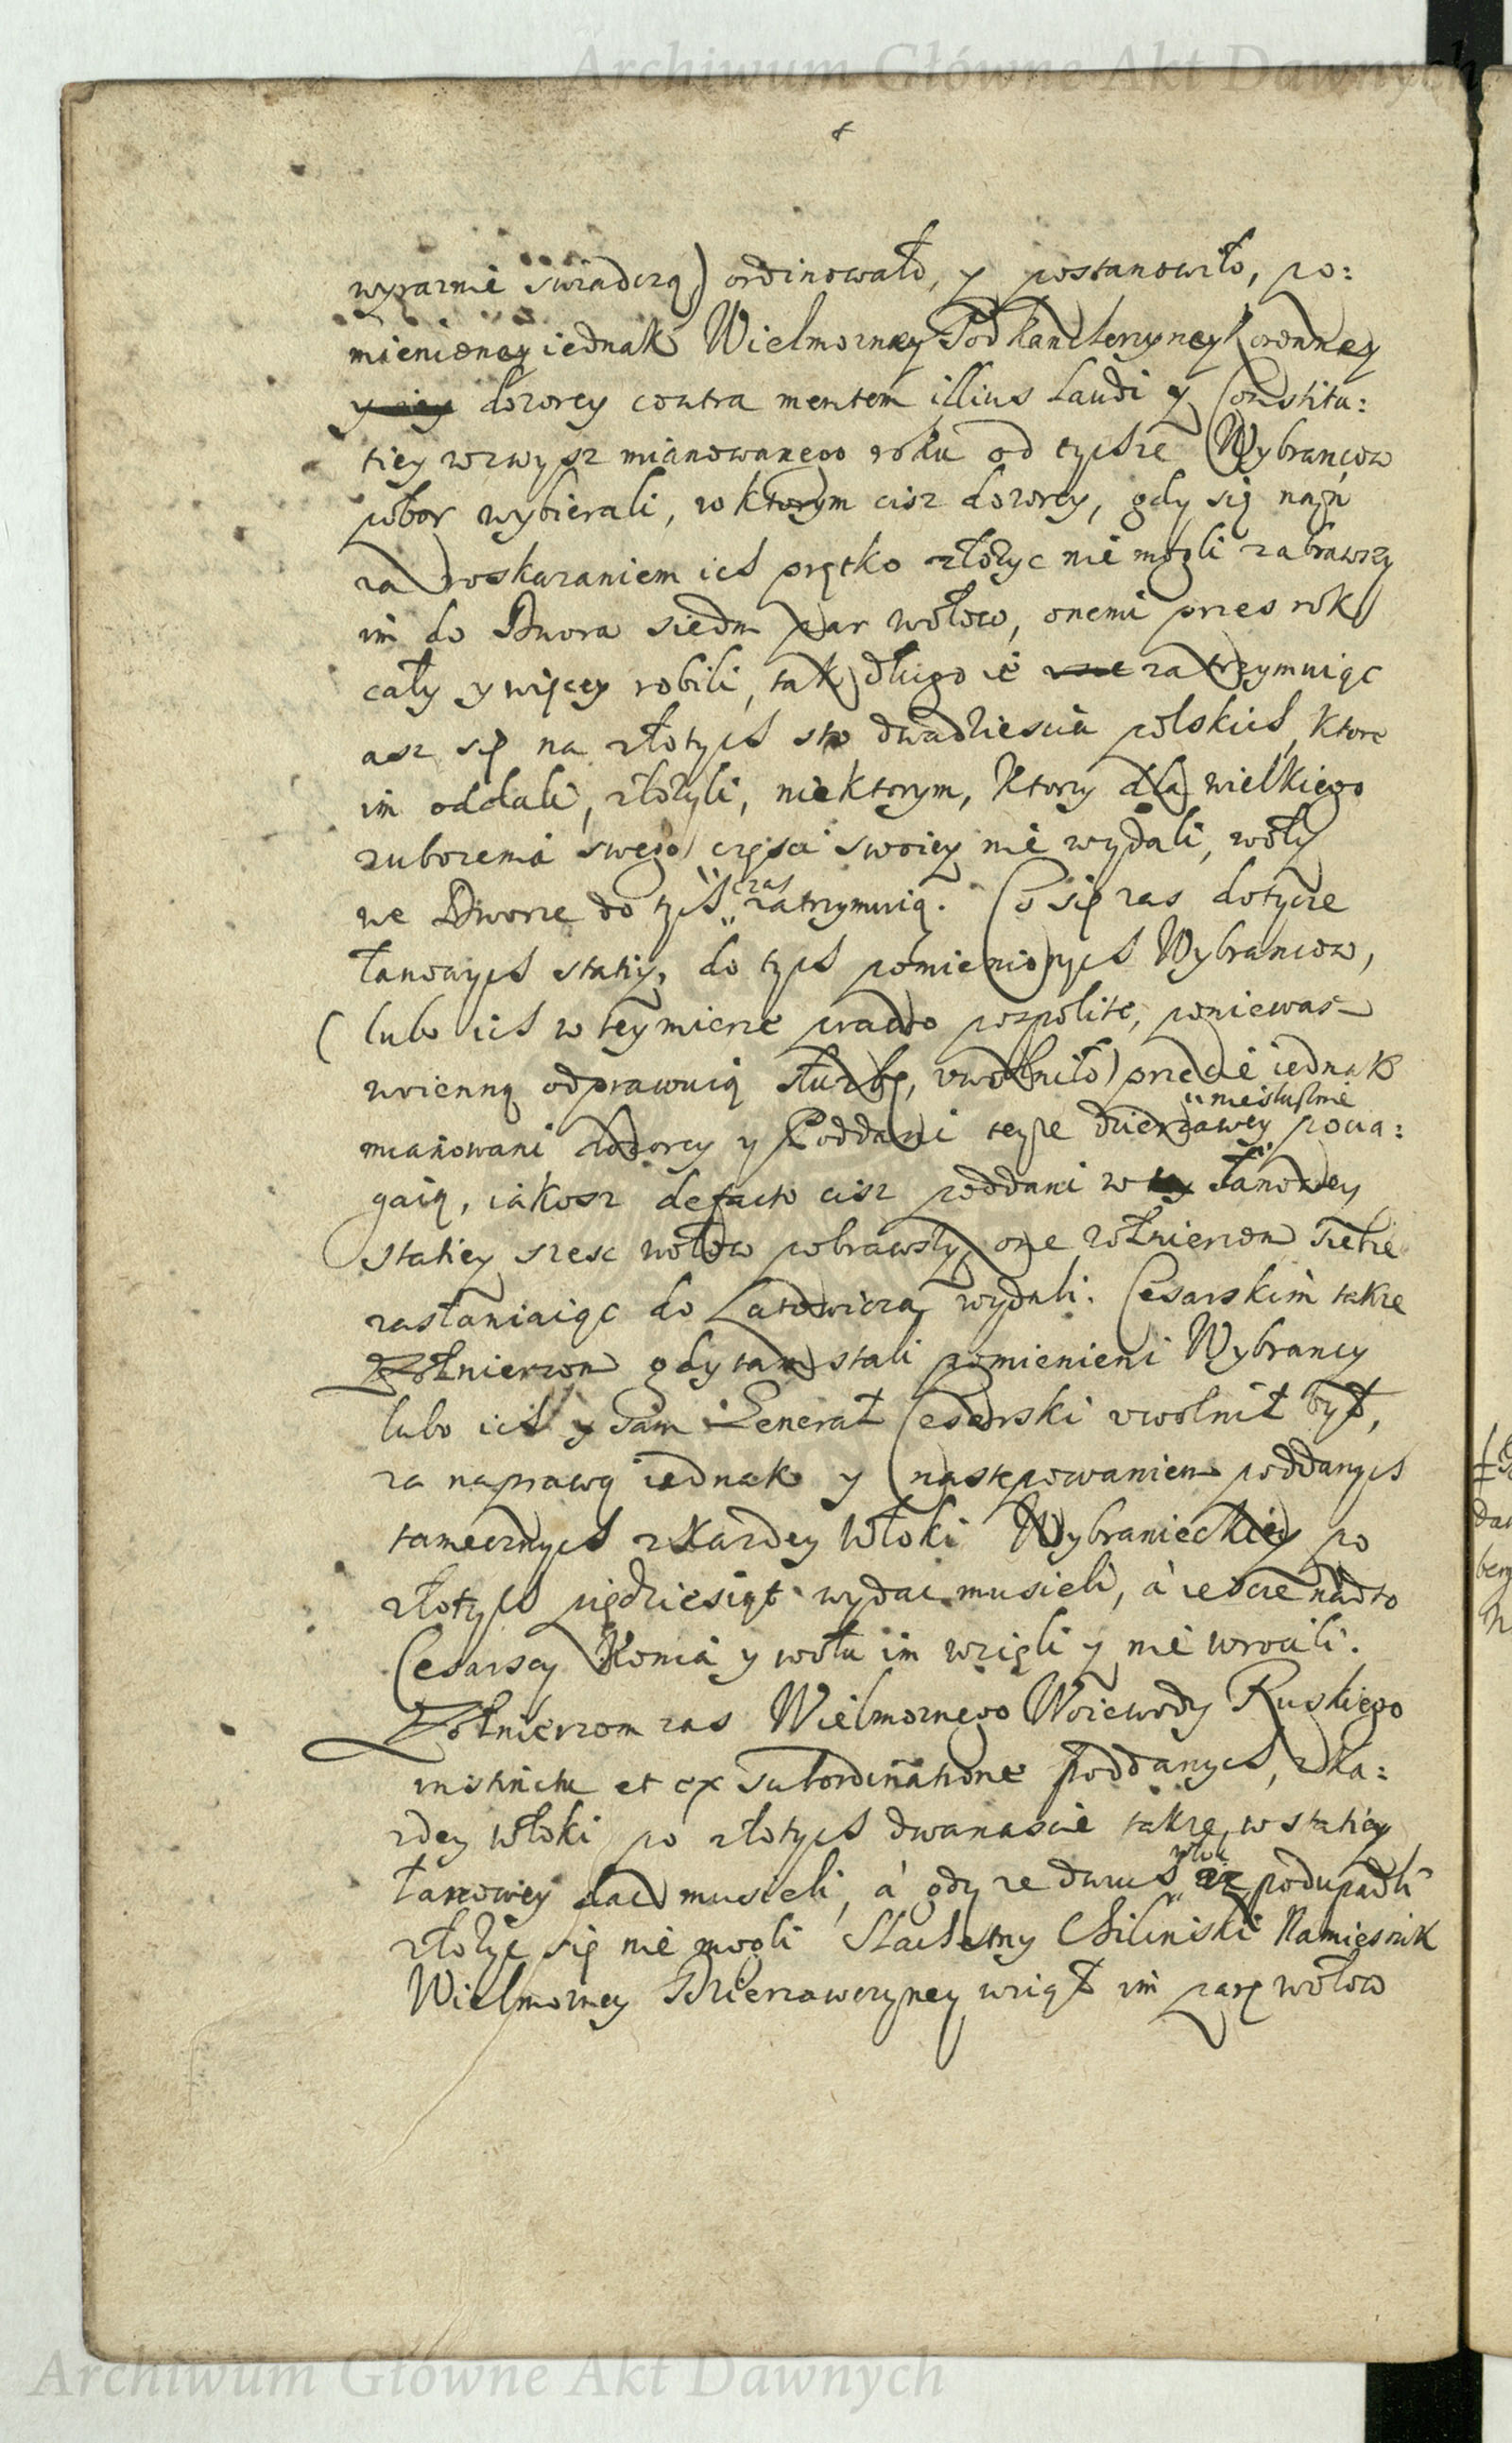 Archiwum Główne Akt Dawnych
wyraznie swiadczą) ordinowało, y postanowiło, po:
mienioney iednak Wielmozney Podkanclerzyney Koronney
dozorcy contra mentem illius Laudi y Constitu:
tiey wzwysz mianowanego roku od tychze Wybrancow
pobor wybierali, w ktorym cisz dozorcy, gdy się nań
za roskazaniem ich prętko złozyc nie mogli zabrawszy
im do Dwora siedm par wołow, onemi przes rok
cały y więcey robili, tak długo ie zatrzymuiąc
asz się na złotych sto dwadziescia polskich, ktore
im oddali, złozyli, niektorym, ktorzy dla wielkiego
zubozenia swego częsci swoiey nie wydali, woły
we Dworze do tych czas zatrzymuią. Co się zas dotycze
łanowych statiy, do tych pomienionych Wybrancow,
(lubo ich w tey mierze prawo pospolite, poniewas
woienną odprawuią słuzbę, uwolniło) przecie iednak
niesłusznie
mianowani dozorcy y Poddani teyze dzierzawey pocią:
gaią, iakosz defacto cisz poddani w łanowey
statiey szesc wołow pobrawszy, one zołnierzom siebie
zasłaniaiąc do Latowicza wydali. Cesarskim takze
Zołnierzom gdy tam stali pomienieni Wybrancy
lubo ich y sam Generał Cesarski uwolnił był,
za naprawą iednak y następowaniem poddanych
tamecznych z kazdey Włoki Wybranieckiey po
złotych piędziesiąt wydac musieli, á iescze nadto
Cesarscy Konia y wołu im wzięli y nie wrocili.
Zołnierzom zas Wielmoznego Woiewody Ruskiego
instinctu et ex subordinatione poddanych, z ka:
zdey włoki po złotych dwanascie takze w statiey
włok
łanowey dac musieli, á gdy ze dwuch podupadli
złozyc się nie mogli Slachetny Chilinski Namiesnik
Wielmozney Dzierzawczyney wziął im parę wołow
Archiwum Główne Akt Dawnych